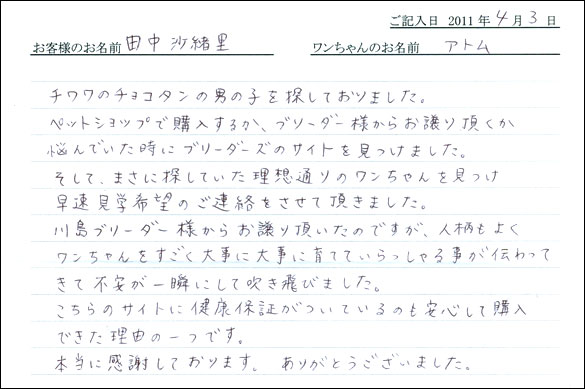 ご記入日 2011年 4月 3日
お客様のお名前 田中 沙緒里 ワンちゃんのお名前 アトム
チワワのチョコタンの男の子を探しておりました。
ペットショップで購入するか、ブリーダー様からお譲り頂くか
悩んでいた時にブリーダーズのサイトを見つけました。
そして、まさに探していた理想通りのワンちゃんを見つけ
早速見学希望のご連絡をさせて頂きました。
川島ブリーダー様からお譲り頂いたのですが、人柄もよく
ワンちゃんをすごく大事に大事に育てていらっしゃる事が伝わって
きて不安が一瞬にして吹き飛びました。
こちらのサイトに健康保証がついているのも安心して購入
できた理由の一つです。
本当に感謝しております。 ありがとうございました。